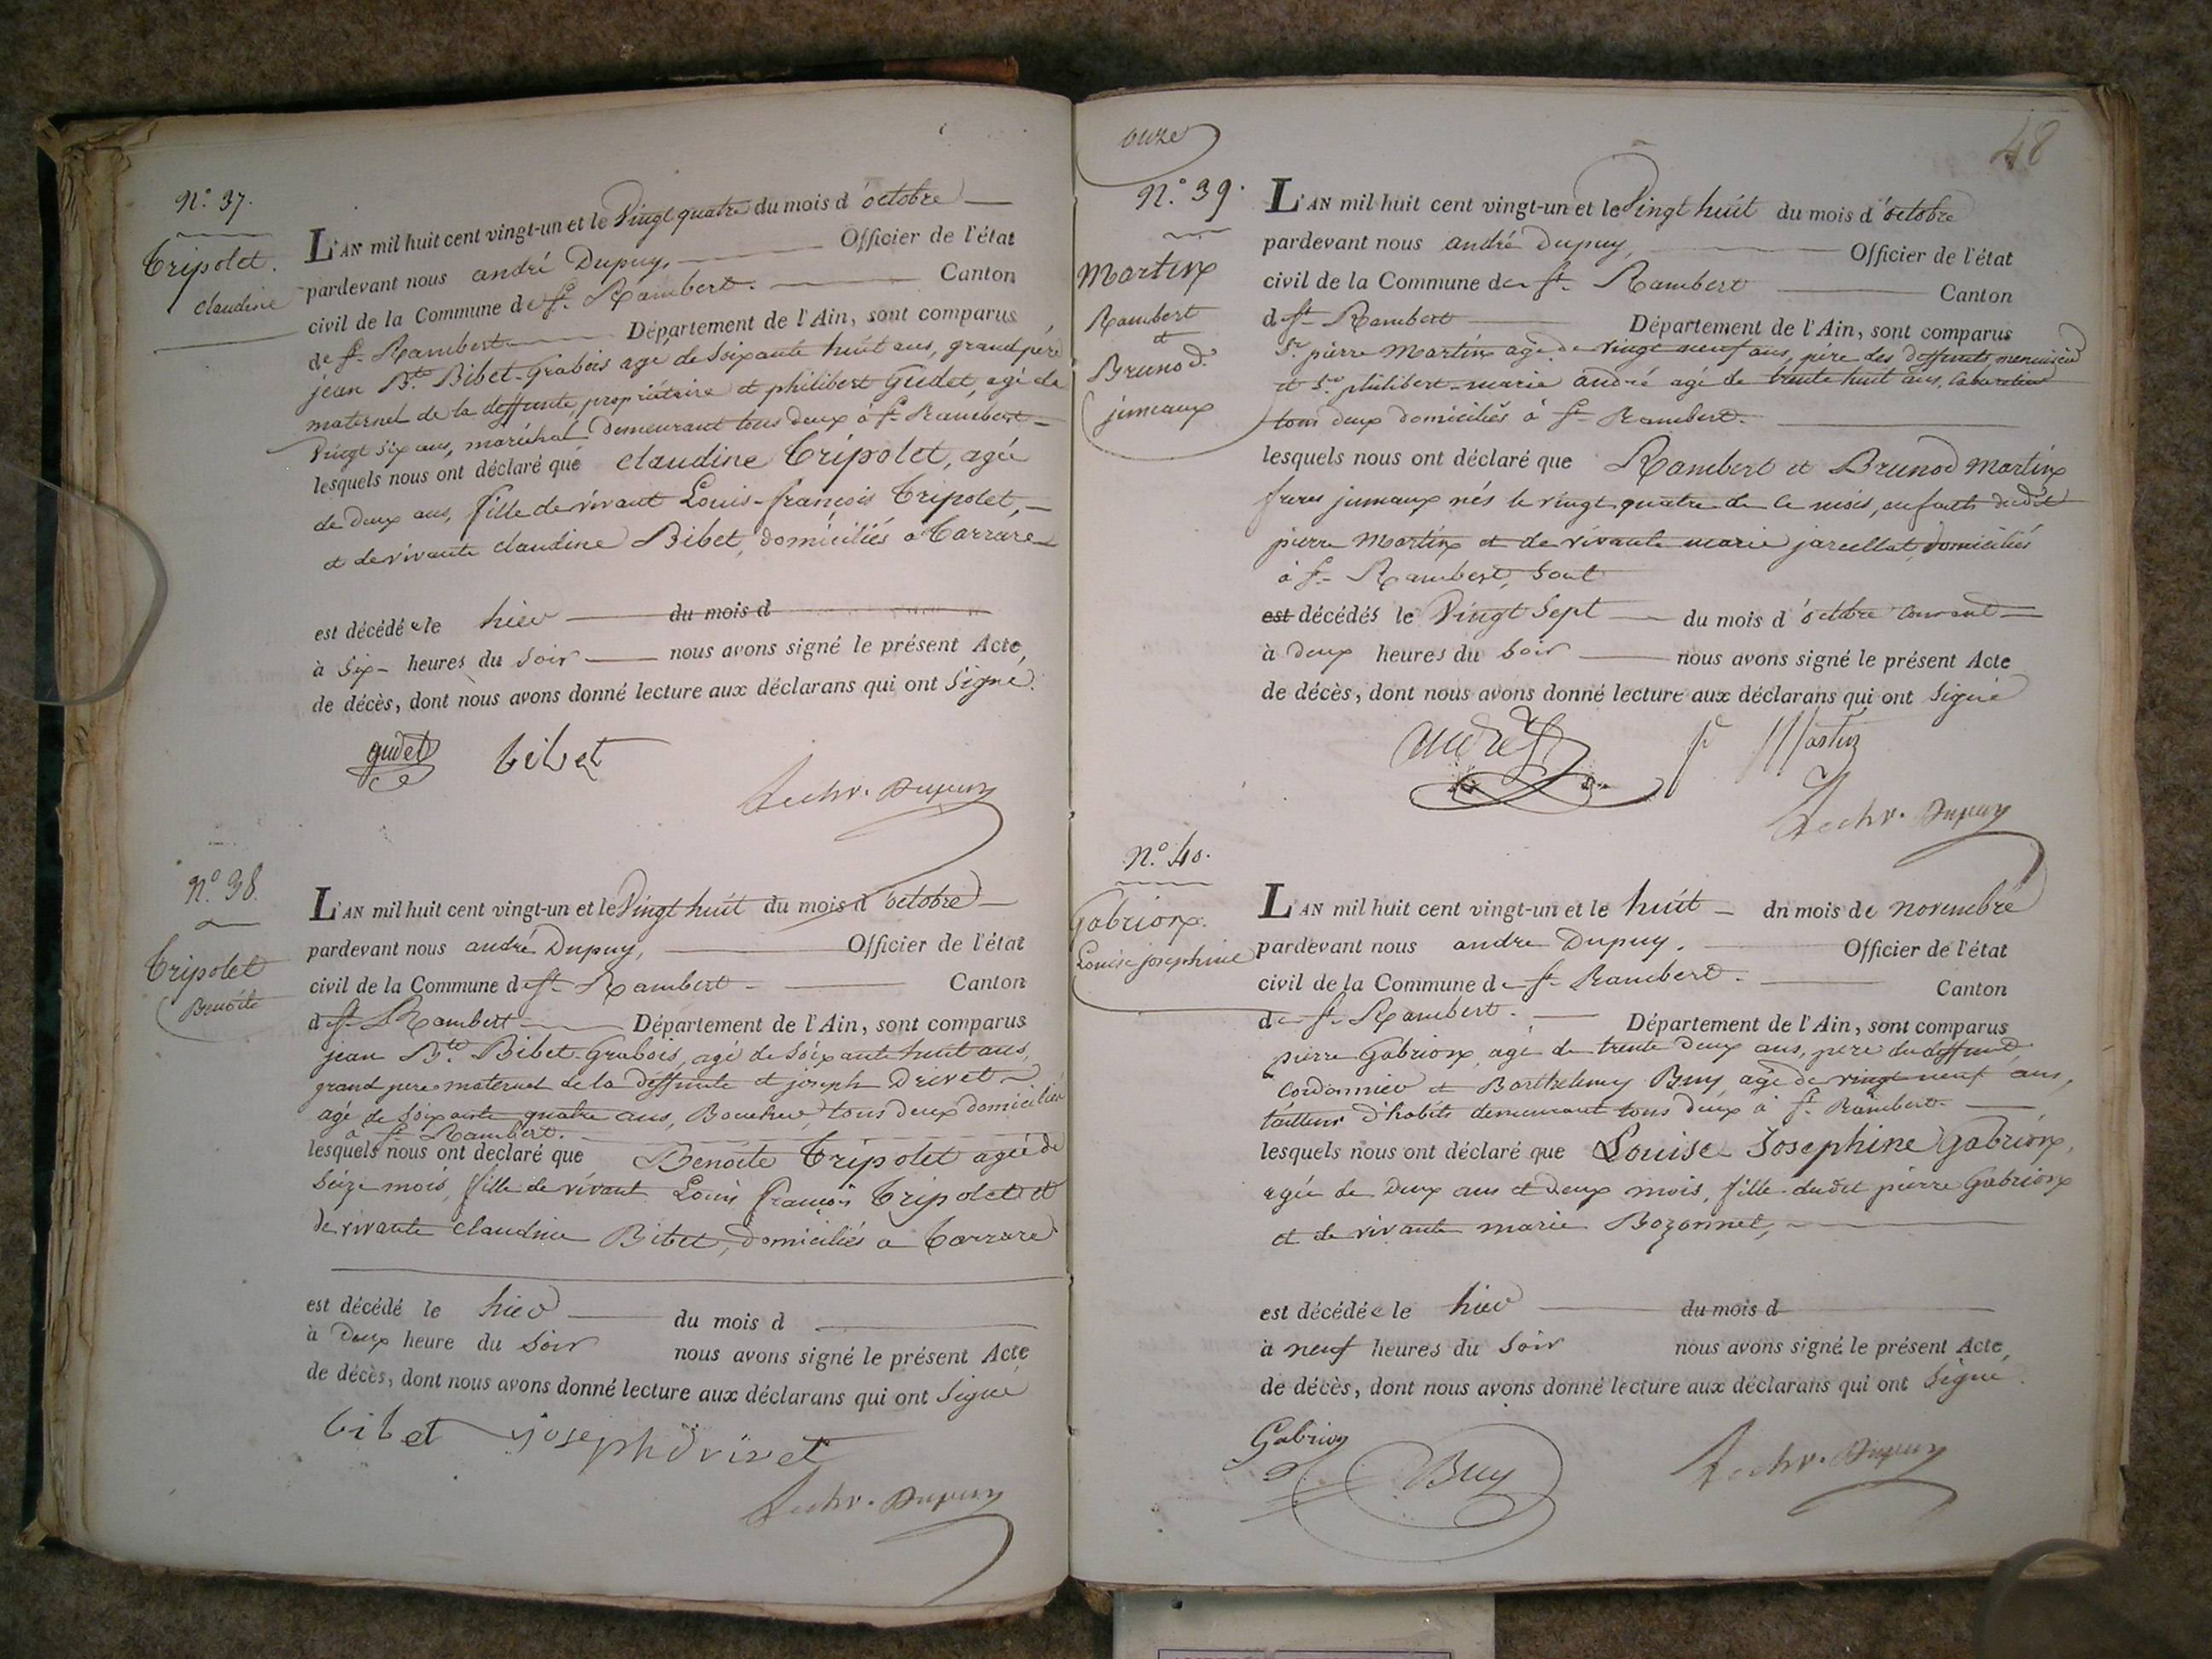 N.° 37.
Tripolet.
claudine
L'AN mil huit cent vingt-un et le Vingt quatre du mois d'octobre
pardevant nous andré Dupuy, Officier de l'état
civil de la Commune de St. Rambert. Canton
de St. Rambert Département de l'Ain, sont comparus
jean Bte. Bibet-Grabois agé de soixante huit ans, grand père
maternel de la deffunte, propriétaire et philibert Gudet, agé de
Vingt six ans, maréchal demeurant tous deux à St. Rambert
lesquels nous ont déclaré que claudine Tripolet, agée
de deux ans, fille de vivant Louis-françois Tripolet,
et de vivante claudine Bibet, domiciliés à Tarrare
est décédée le hier du mois d
à six heures du soir nous avons signé le présent Acte
de décès, dont nous avons donné lecture aux déclarans qui ont signé.
gudet bibet
Dupuy
N.° 38.
Tripolet
Benoite
L'AN mil huit cent vingt-un et le Vingt huit du mois d'octobre
pardevant nous andré Dupuy, Officier de l'état
civil de la Commune de St. Rambert Canton
de St. Rambert Département de l'Ain, sont comparus
jean Bte. Bibet-Grabois, agé de soixante huit ans,
grand pere maternel de la deffunte et joseph Drivet
agé de soixante quatre ans, Boucher, tous deux domiciliés
à St. Rambert.
lesquels nous ont declaré que Benoite Tripolet agée de
seize mois, fille de vivant Louis françois Tripolet et
de vivante claudine Bibet, domiciliés a Tarrare
est décédé le hier du mois d
à Deux heure du soir nous avons signé le présent Acte
de décès, dont nous avons donné lecture aux déclarans qui ont signé
bibet joseph drivet
Dupuy
onze
48
N.° 39.
Martin
Rambert
et
Brunod
jumeaux
L'AN mil huit cent vingt-un et le Vingt huit du mois d'octobre
pardevant nous andré Dupuy, Officier de l'état
civil de la Commune de St. Rambert Canton
de St. Rambert Département de l'Ain, sont comparus
Sr. pierre Martin agé de vingt neuf ans, père des deffunts, menuisier
et Sr. philibert-marie andré agé de trente huit ans, Cabaretier
tous deux domiciliés à St. Rambert.
lesquels nous ont déclaré que Rambert et Brunod Martin
freres jumeaux nés le vingt quatre de ce mois, enfants dudit
pierre Martin et de vivante marie jarcellat, domiciliés
à St. Rambert, sont
est décédés le Vingt sept du mois d'octobre courant
à deux heures du soir nous avons signé le présent Acte
de décès, dont nous avons donné lecture aux déclarans qui ont signé
andré P Martin
Dupuy
N.° 40.
Gabrion.
Louise josephine
L'AN mil huit cent vingt-un et le huit dn mois de novembre
pardevant nous andre Dupuy. Officier de l'état
civil de la Commune de St. Rambert. Canton
de St. Rambert. Département de l'Ain, sont comparus
pierre Gabrion, agé de trente deux ans, pere du deffunt
Cordonnier et Barthelemy Buy, agé de vingt neuf ans,
tailleur d'habits demeurant tous deux à St. Rambert.
lesquels nous ont déclaré que Louise Josephine Gabrion,
agée de deux ans et deux mois, fille dudit pierre Gabrion
et de vivante marie Bozonnet,
est décédée le hier du mois d
à neuf heures du soir nous avons signé le présent Acte
de décès, dont nous avons donné lecture aux déclarans qui ont signé.
Gabrion Buy
Dupuy